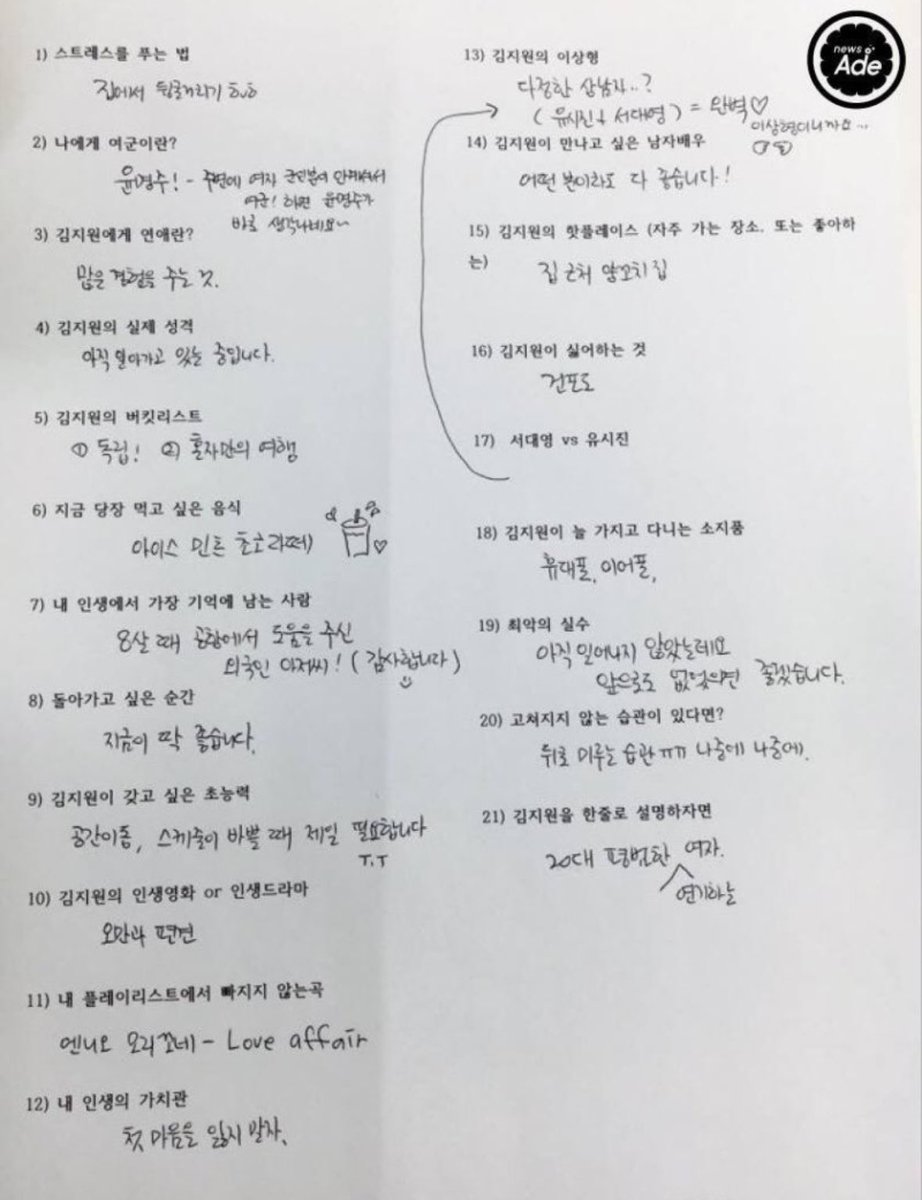 news
Ade
1) 스트레스를 푸는 법
집에서 뒹굴거리기 ㅎ.ㅎ
2) 나에게 여군이란?
윤명주! - 주변에 여자 군인분이 안계셔서
여군! 하면 윤명주가
바로 생각나네요~
3) 김지원에게 연애란?
많은 경험을 주는 것.
4) 김지원의 실제 성격
아직 알아가고 있는 중입니다.
5) 김지원의 버킷리스트
① 독립! ② 혼자만의 여행
6) 지금 당장 먹고 싶은 음식
아이스 민트 초코라떼)
7) 내 인생에서 가장 기억에 남는 사람
8살 때 공항에서 도움을 주신
외국인 아저씨! (감사합니다)
8) 돌아가고 싶은 순간
지금이 딱 좋습니다.
9) 김지원이 갖고 싶은 초능력
공간이동, 스케줄이 바쁠 때 제일 필요합니다
T.T
10) 김지원의 인생영화 or 인생드라마
오만과 편견
11) 내 플레이리스트에서 빠지지 않는곡
엔니오 모리꼬네 - Love affair
12) 내 인생의 가치관
첫 마음을 잃지 말자.
13) 김지원의 이상형
다정한 상남자..?
(유시진 + 서대영) = 완벽♡
이상형이니까요...
14) 김지원이 만나고 싶은 남자배우
어떤 분이라도 다 좋습니다!
15) 김지원의 핫플레이스 (자주 가는 장소. 또는 좋아하
는)
집 근처 양꼬치집
16) 김지원이 싫어하는 것
건포도
17) 서대영 vs 유시진
18) 김지원이 늘 가지고 다니는 소지품
휴대폰, 이어폰,
19) 최악의 실수
아직 일어나지 않았는데요
앞으로도 없었으면 좋겠습니다.
20) 고쳐지지 않는 습관이 있다면?
뒤로 미루는 습관 ㅠㅠ 나중에 나중에.
21) 김지원을 한줄로 설명하자면
20대 평범한 여자.
연기하는